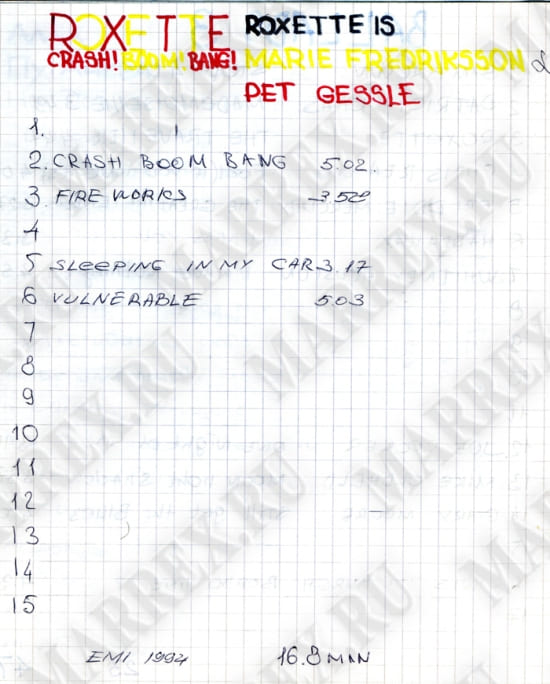 ROXETTE ROXETTE IS
CRASH! BOOM! BANG! MARIE FREDRIKSSON &
PET GESSLE
1.
2. CRASH BOOM BANG 5.02.
3 FIRE WORKS 3.58
4
5 SLeePING IN MY CAR 3.17
6 VULNERABLE 5.03
7
8
9
10
11
12
13
14
15
EMI 1994 16.8 MIN
MARREX.RU
MARREX.RU
MARREX.RU
MARREX.RU
MARREX.RU
MARREX.RU